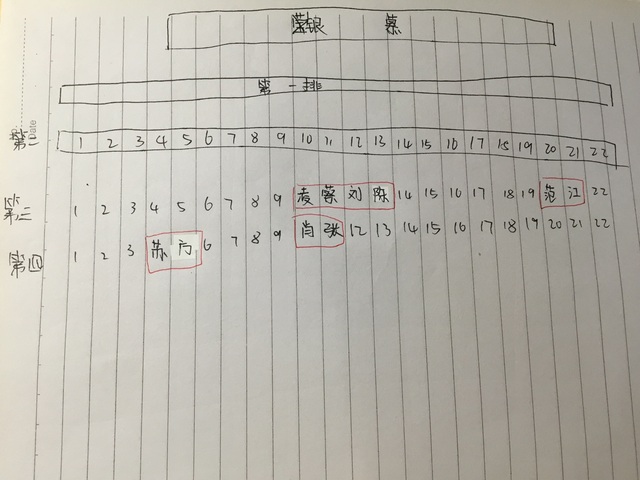 银 幕
第一排
第二 1 2 3 4 5 6 7 8 9 10 11 12 13 14 15 16 17 18 19 20 21 22
第三 1 2 3 4 5 6 7 8 9 凌 蔡 刘 陈 14 15 16 17 18 19 范 江 22
第四 1 2 3 苏 方 6 7 8 9 肖 张 12 13 14 15 16 17 18 19 20 21 22